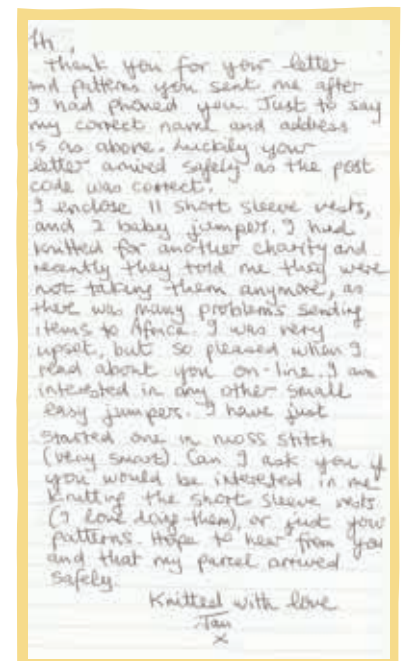 Hi,
Thank you for your letter
and patterns you sent me after
I had phoned you. Just to say
my correct name and address
is as above. Luckily your
letter arrived safely as the post
code was correct.
I enclose 11 short sleeve vests,
and 2 baby jumpers. I had
knitted for another charity and
recently they told me they were
not taking them anymore, as
there was many problems sending
items to Africa. I was very
upset, but so pleased when I
read about you on-line. I am
interested in any other small
easy jumpers. I have just
started one in moss stitch
(very smart). Can I ask you if
you would be interested in me
knitting the short sleeve vests
(I love doing them), or just your
patterns. Hope to hear from you
and that my parcel arrived
safely.
Knitted with love
Jan
x